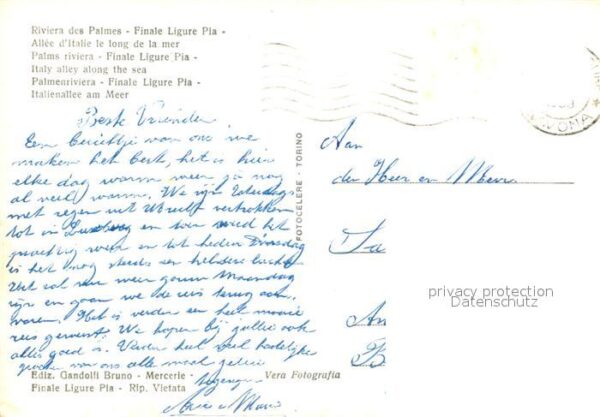 Riviera des Palmes - Finale Ligure Pia -
Allée d'Italie le long de la mer
Palms riviera - Finale Ligure Pia -
Italy alley along the sea
Palmenriviera - Finale Ligure Pia -
Italienallee am Meer
Beste Vrienden
Een berichtje van ons we
maken het best, het is hier
elke dag warm weer ja nog
al veel warm. We zijn Zaterdags
met regen uit vertrokken
tot in en toen werd het
prachtig weer en tot heden Dinsdag
is het nog steeds een heldere lucht
Het zal van weer gauw Maandag
zijn en gaan we de reis terug
Het is verder een mooie
reis geweest. We hopen bij jullie ook
alles goed is. Verder heel veel hartelijke
groeten van ons alle maal
FOTOCELERE - TORINO
Aan
den Heer en Mevr
SAVONA
privacy protection
Datenschutz
Ediz. Gandolfi Bruno - Mercerie -
Finale Ligure Pia - Rip. Vietata
Vera Fotografia